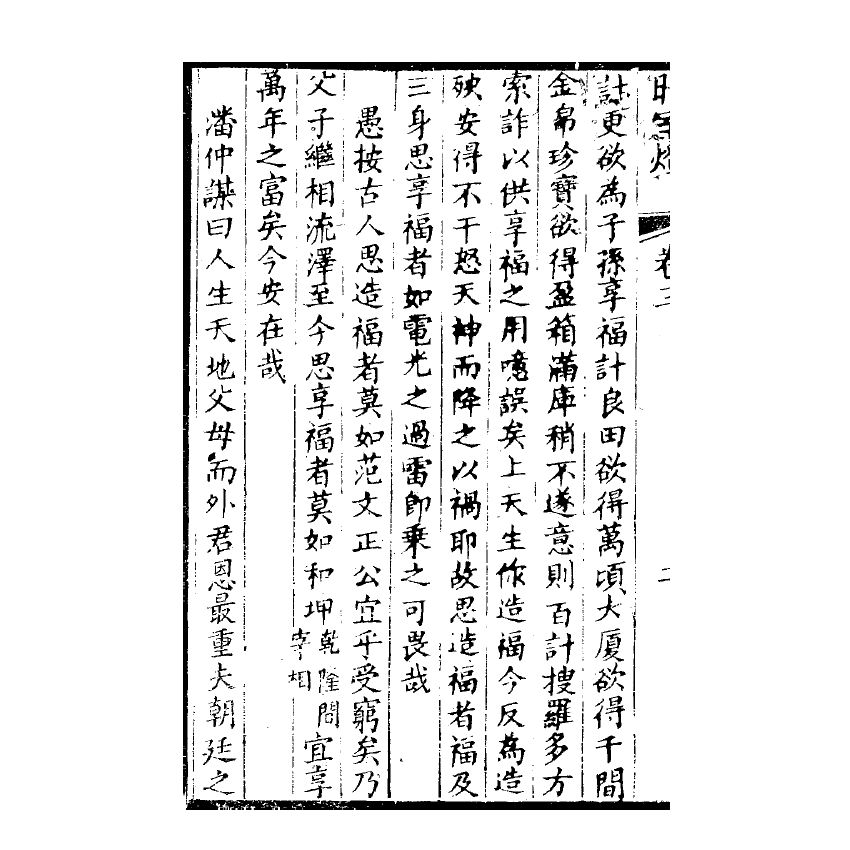 卷
更欲為子孫享福計良田欲得萬頃大厦欲得千間
金帛珍寶欲得盈箱滿庫稍不遂意則百計搜羅多方
索詐以供享福之用噫誤矣上天生你造福今反為造
殃安得不干怒天神而降之以禍耶故思造福者福及
三身思享福者如電光之過雷即乘之可畏哉
愚按古人思造福者莫如范文正公宜乎受窮矣乃
父子繼相流澤至今思享福者莫如和坤乾隆間宰相宜享
萬年之富矣今安在哉
潘仲謀曰人生天地父母而外君恩最重夫朝廷之